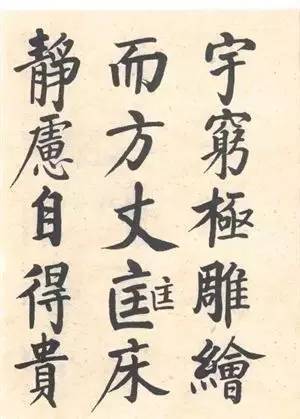 宇窮極雕繪
而方丈匡匡床
靜慮自得貴